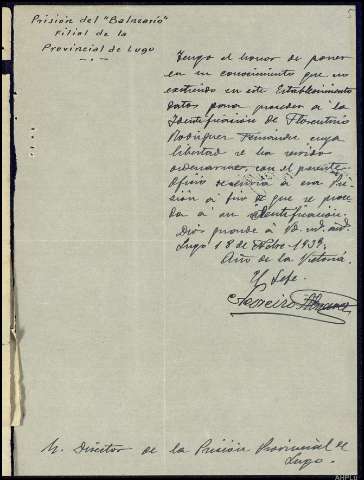 Prisión del "Balneario"
Filial de la
Provincial de Lugo
Tengo el honor de poner
en su conocimiento que no
existiendo en este Establecimiento
datos para proceder á la
Identificación de Florentino
Rodríguez Fernández cuya
libertad se ha servido
ordenarme, con el presente
Oficio á esa Pri
sión á fin de que se proce
da á su identificación.
Dios guarde á Vd. m. añs.
Lugo 18 de 1939.
Año de la Victoria.
El Jefe
Sr. Director de la Prisión Provincial de
Lugo.
AHPLU